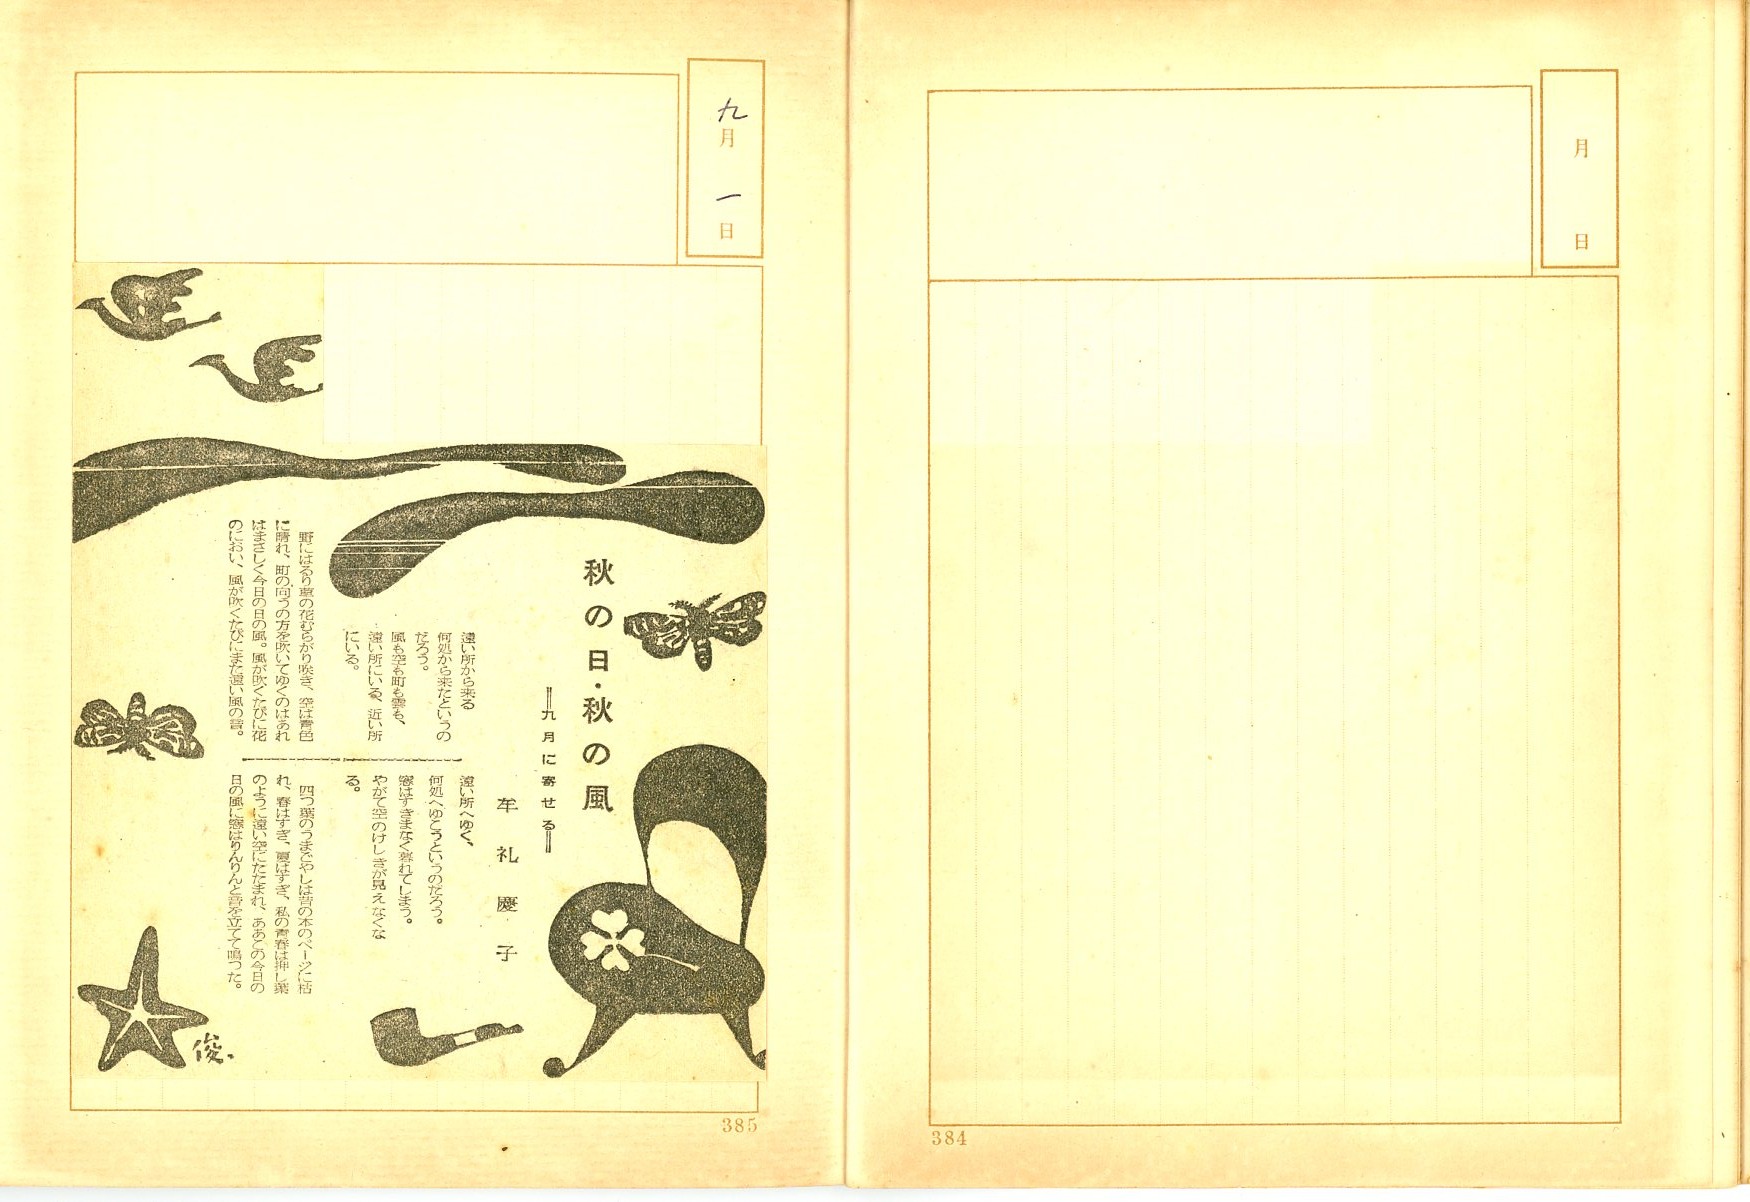 月
日
384
九月
一日
秋の日・秋の風
九月に寄せる
牟礼慶子
遠い所から来る
何処から来たというの
だろう。
風も空も町も雲も、
遠い所にいる、近い所
にいる。
野にはるり草の花むらがり咲き、空は青色
に晴れ、町の向うの方を吹いてゆくのはあれ
はまさしく今日の日の風。風が吹くたびに花
のにおい、風が吹くたびにまた遠い風の音。
遠い所へゆく、
何処へゆこうというのだろう。
窓はすきまなく暮れてしまう。
やがて空のけしきが見えなくな
る。
四つ葉のうまごやしは昔の本のページに枯
れ、春はすぎ、夏はすぎ、私の青春は押し葉
のように遠い空にたたまれ、ああこの今日の
日の風に窓はりんりんと音を立てて鳴った。
俊.
385